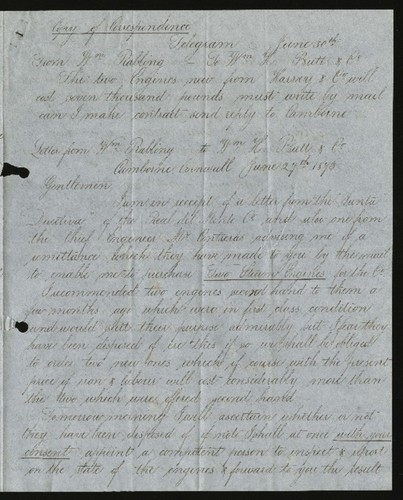 Copy of Correspondence
Telegram June 30th
From Wm Rabling to Wm H Butt & Co
The two Engines new from Harvey & Co will
cost seven thousand pounds must write by mail
can I make contract send reply to Camborne
Letter from Wm Rabling to Wm H. Butt & Co.
Camborne Cornwall June 27th 1873
Gentlemen,
I am in receipt of a letter from the "Junta
Directiva" of the Real del Monte Co and also one from
the Chief Engineer Mr Contreras advising me of a
remittance which they have made to you by the mail
to enable me to purchase two Steam Engines for the Co.
I recommended two engines second hand to them a
few months ago which were in first class condition
and would suit their purpose admirably but I fear they
have been disposed of if so we shall be obliged
to order two new ones which of course with the present
price of iron & labour will cost considerably more than
the two which were offered second hand.
Tomorrow morning I will ascertain whether or not
they have been disposed of if not I shall at once with your
consent appoint a competent person to inspect & report
on the state of the engines & forward to you the result